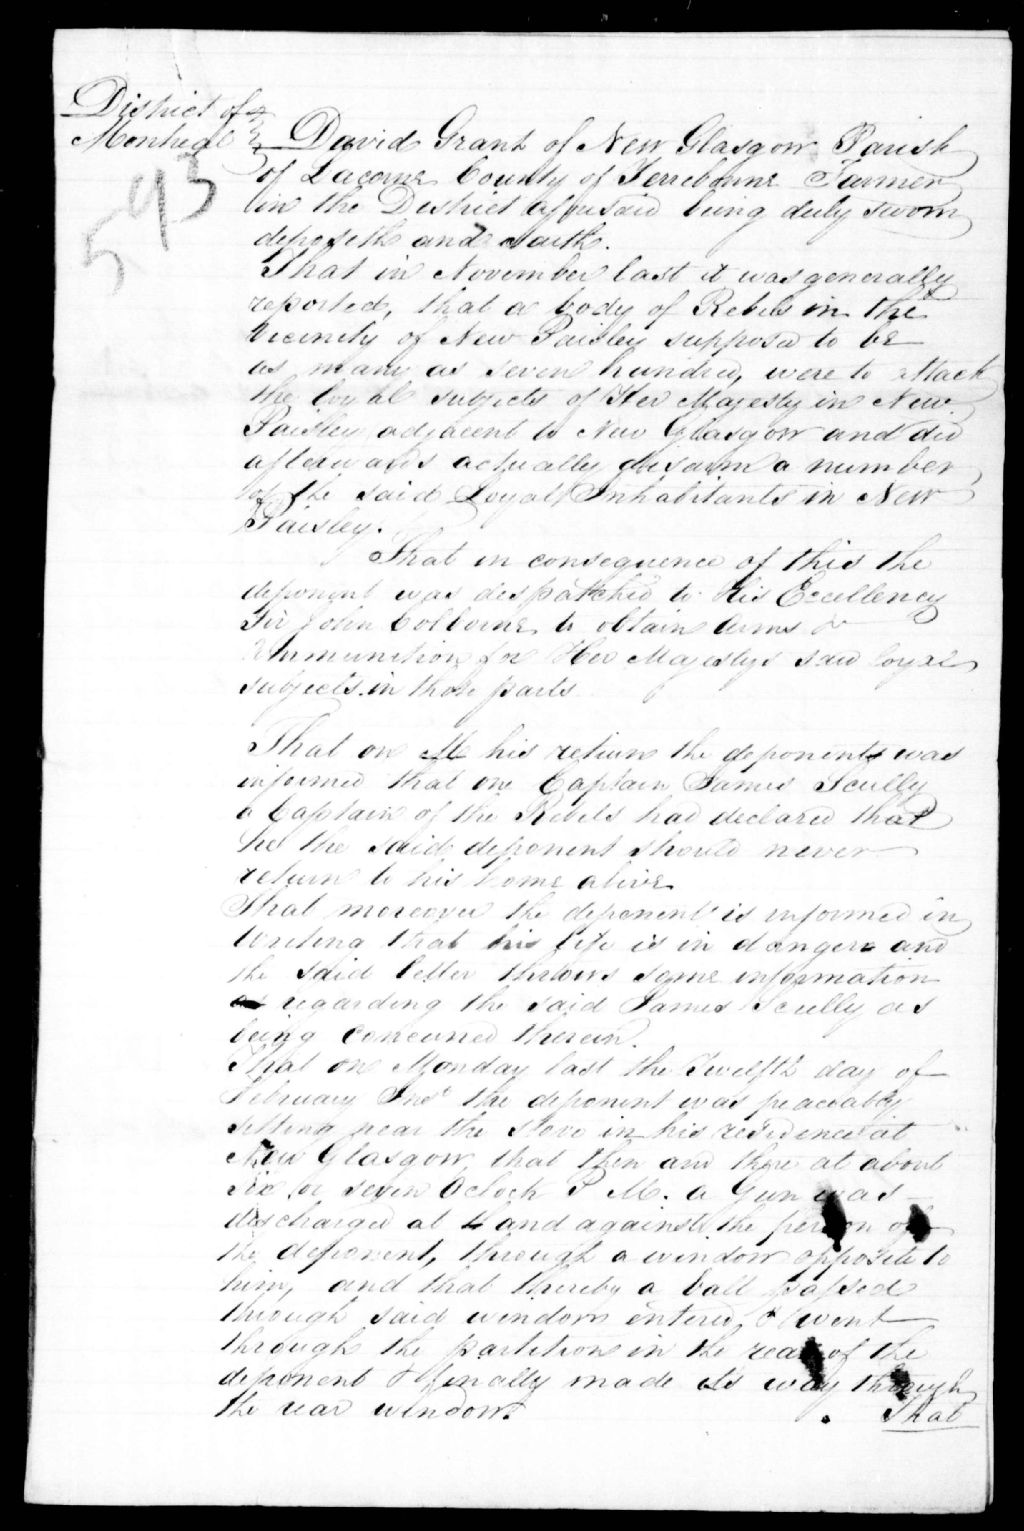 District of
Montreal
593
David Grant of New Glasgow Parish
of Lacorne County of Terrebonne Farmer
in the District aforesaid being duly sworn
deposeth and saith.
That in November last it was generally
reported, that a body of Rebels in the
vicinity of New Paisley supposed to be
as many as seven hundred, were to attack
the loyal subjects of Her Majesty in New
Paisley adjacent to New Glasgow and did
afterwards actually disarm a number
of the said Loyal Inhabitants in New
Paisley.
That in consequence of this the
deponent was despatched to His Excellency
Sir John Colborne to obtain Arms &
Ammunition for Her Majestys said loyal
subjects in those parts
That on his return the deponent was
informed that one Captain James Scully
a Captain of the Rebels had declared that
he the said deponent should never
return to his home alive
That moreover the deponent is informed in
writing that his life is in danger and
the said letter throws some information
regarding the said James Scully as
being concerned therein.
That on Monday last the Twelfth day of
February Inst the deponent was peaceably
sitting near the stove in his residence at
New Glasgow, that then and there at about
six or seven Oclock P. M. a Gun was
discharged at & and against the person of
the deponent, through a window opposite to
him, and that thereby a ball passed
through said window entered & went
through the partition in the rear of the
deponent & finally made its way through
the rear window.
That